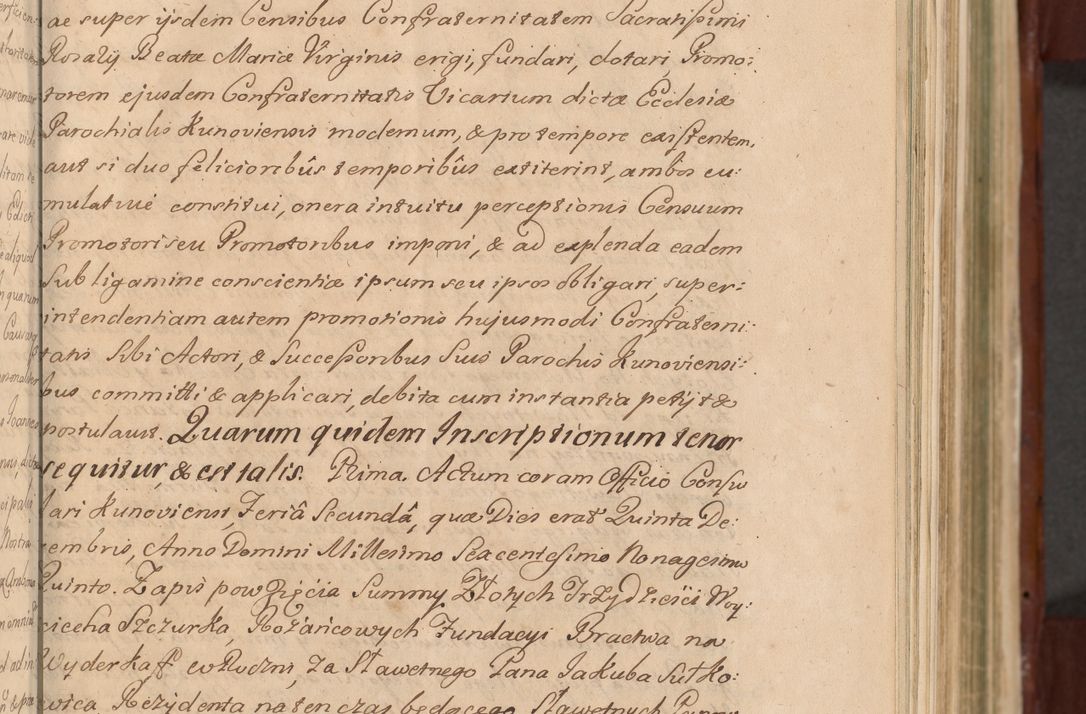 ae super ijsdem Censibus Confraternitatem Sacratissimi
Rosarij Beatæ Mariæ Virginis erigi, fundari, dotari, Promo:
torem ejusdem Confraternitatis Vicarium dictæ Ecclesiæ
Parochialis Kunoviensis modernum, & pro tempore existentem,
aut si duo felicioribûs temporibûs extiterint, ambos cu:
mulativé constitui, onera intuitu perceptionis Censuum
Promotori seu Promotoribus imponi, & ad explenda eadem
sub ligamine conscientiæ ipsum seu ipsos obligari, super:
intendentiam autem promotionis hujusmodi Confraterni:
tatis Sibi Actori, & Successoribus Suis Parochis Kunoviensi:
bus committi & applicari, debita cum instantia petijt &
postulavit. Quarum quidem Inscriptionum tenor
sequitur, & est talis. Prima. Actum coram Officio Consu
lari Kunoviensi, Feriâ Secundâ, quæ Dies erat Quinta De:
cembris, Anno Domini Millesimo Sexcentesimo Nonagesimo
Quinto. Zapis powzięćia Summy Złotych Trzydzieśći Woy:
ciecha Szczurka, Rożańcowych Fundacyi Bractwa na
Wyderkaff coRoczni, za Sławetnego Pana Jakuba Sutko:
wica Rezydenta na ten czas będącego Sławetnych Panny